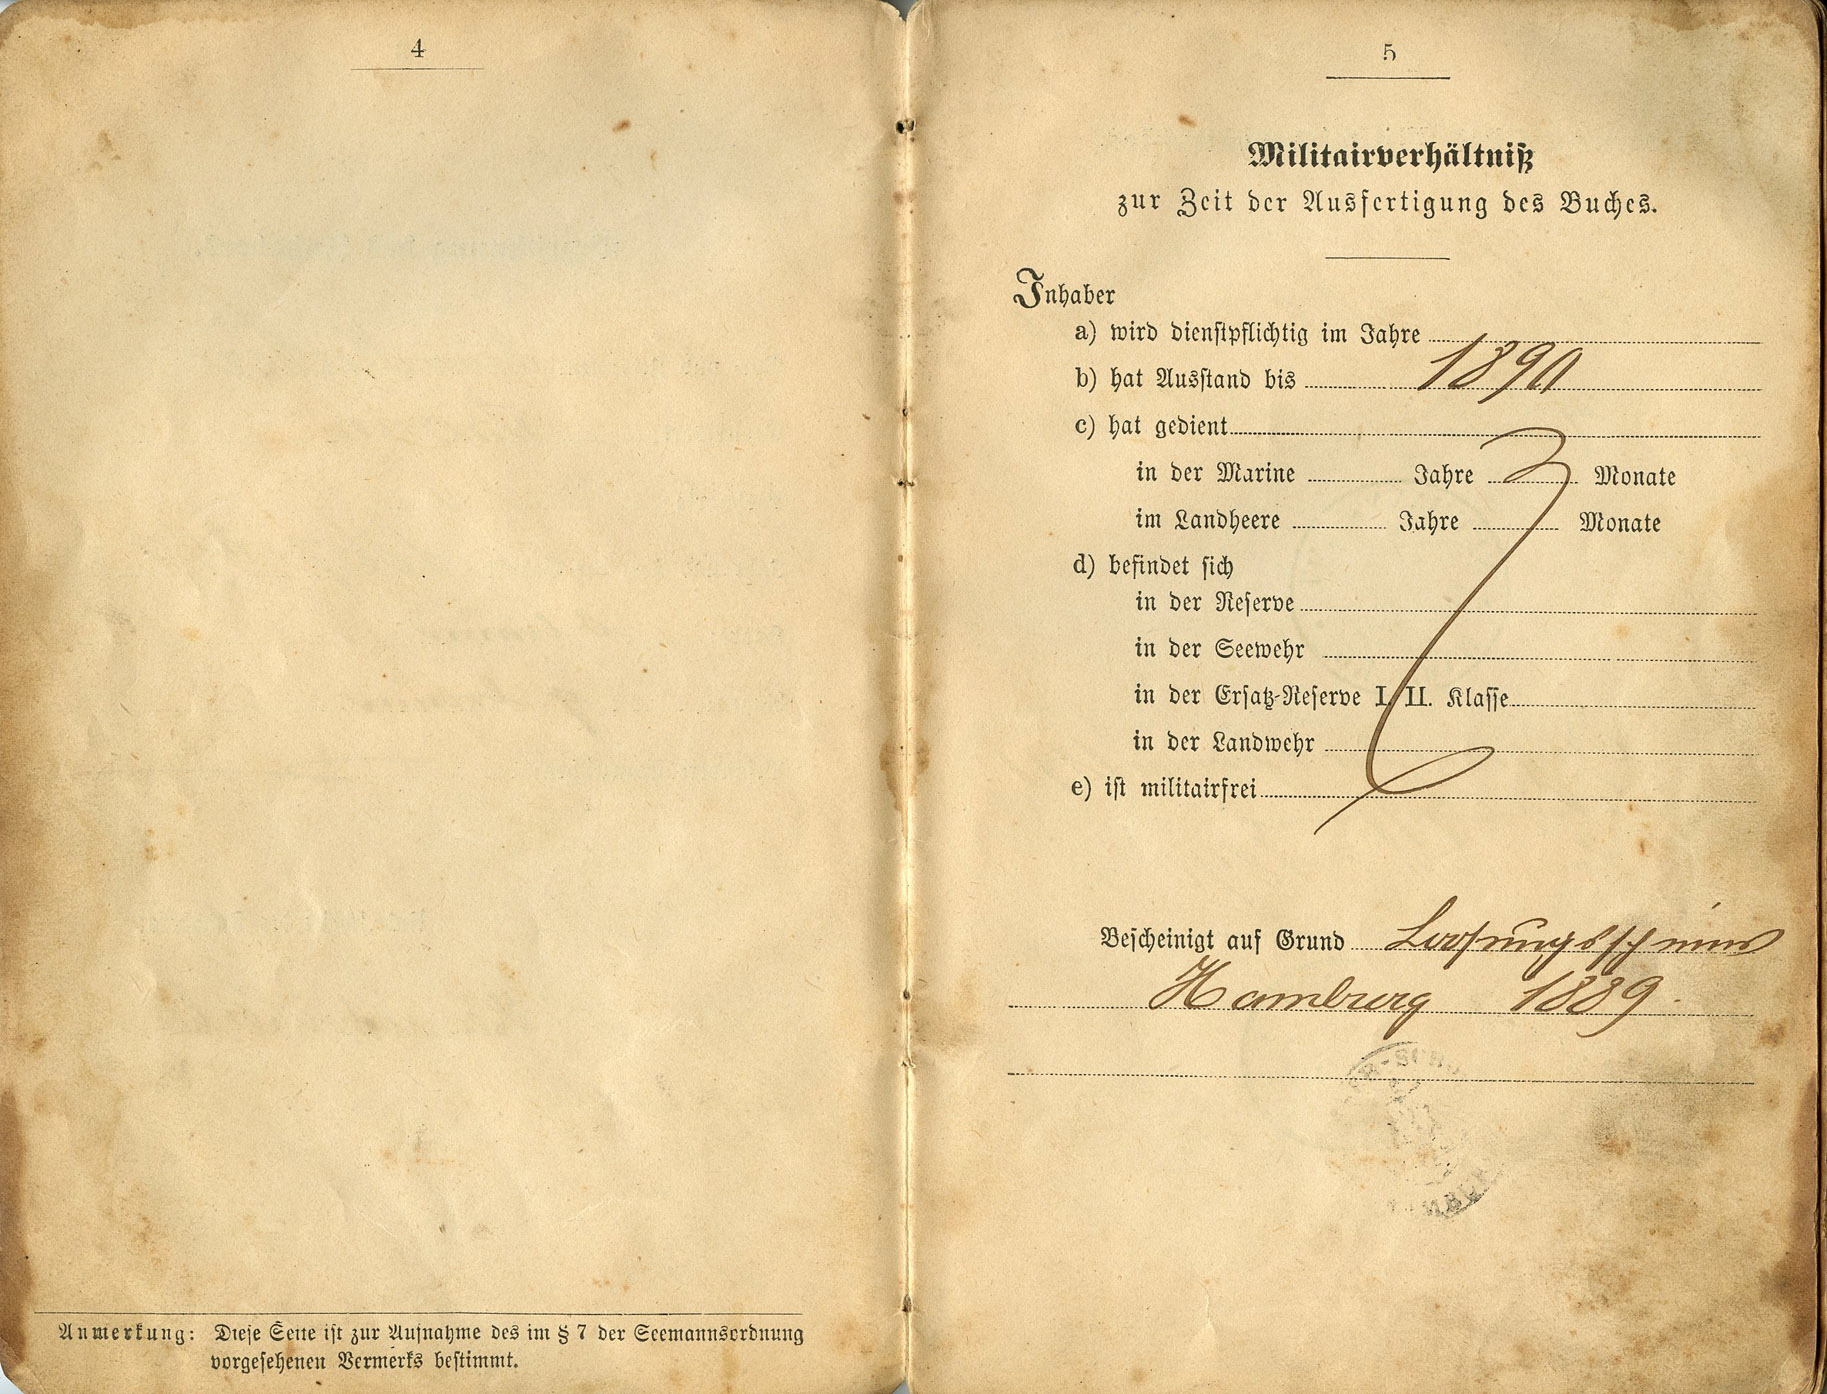 4
Anmerkung: Diese Seite ist zur Aufnahme des im § 7 der Seemannsordnung
vorgesehenen Vermerks bestimmt.
5
Militairverhältniß
zur Zeit der Ausfertigung des Buches.
Inhaber
a) wird dienstpflichtig im Jahre
b) hat Ausstand bis 1890
c) hat gedient
in der Marine Jahre Monate
im Landheere Jahre Monate
d) befindet sich
in der Reserve
in der Seewehr
in der Ersatz-Reserve I. II. Klasse
in der Landwehr
e) ist militairfrei
Bescheinigt auf Grund Loosungsscheins
Hamburg 1889